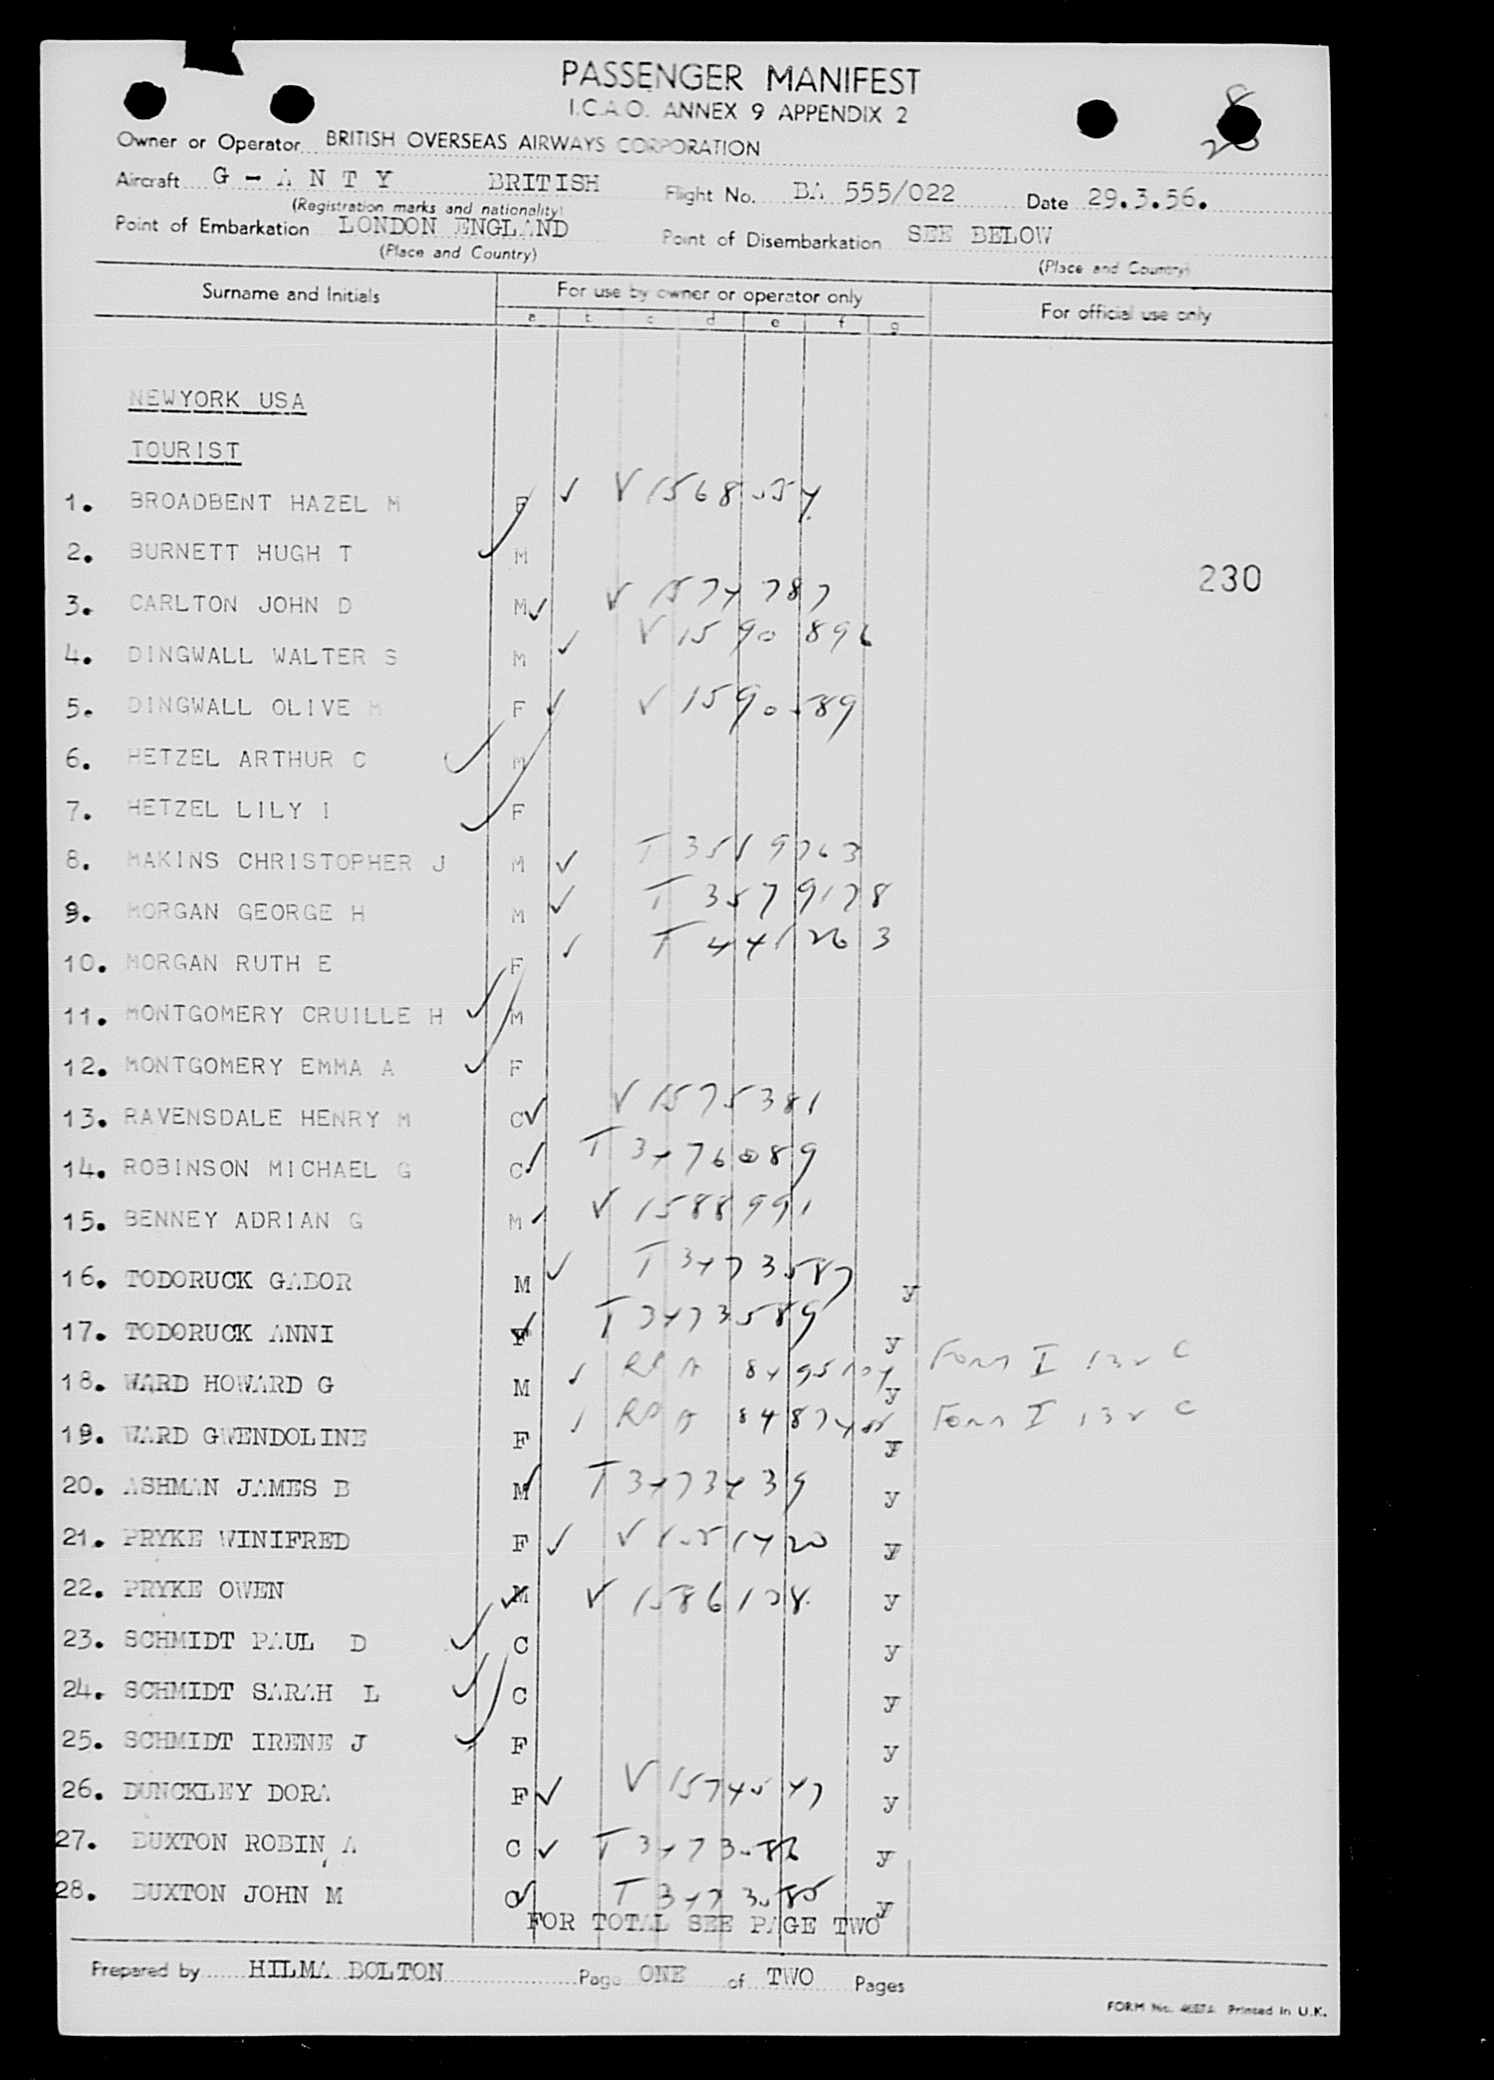 PASSENGER MANIFEST
I.C.A.O. ANNEX 9 APPENDIX 2
28
Owner or Operator BRITISH OVERSEAS AIRWAYS CORPORATION
Aircraft G - A N T Y BRITISH Flight No. BA 555/022 Date 29.3.56.
(Registration marks and nationality)
Point of Embarkation LONDON ENGLAND Point of Disembarkation SEE BELOW
(Place and Country) (Place and Country)
Surname and Initials For use by owner or operator only For official use only
a b c d e f g
NEWYORK USA
TOURIST
1. BROADBENT HAZEL M F V 1568554
2. BURNETT HUGH T M
230
3. CARLTON JOHN D M V 1574787
4. DINGWALL WALTER S M V 1590896
5. DINGWALL OLIVE M F V 1590589
6. HETZEL ARTHUR C M
7. HETZEL LILY I F
8. MAKINS CHRISTOPHER J M T
9. MORGAN GEORGE H M T 3579178
10. MORGAN RUTH E F T
11. MONTGOMERY CRUILLE H M
12. MONTGOMERY EMMA A F
13. RAVENSDALE HENRY M C V 1575381
14. ROBINSON MICHAEL G C T 3476089
15. BENNEY ADRIAN G M V 1588991
16. TODORUCK GABOR M T 3473587 y
17. TODORUCK ANNI F T 3473589 y
18. WARD HOWARD G M y Form I 132 C
19. WARD GWENDOLINE F y Form I 132 C
20. ASHMAN JAMES B M T 3473439 y
21. PRYKE WINIFRED F V 1551420 y
22. PRYKE OWEN M V 1586108 y
23. SCHMIDT PAUL D C y
24. SCHMIDT SARAH L C y
25. SCHMIDT IRENE J F y
26. DUNCKLEY DORA F V 1574547 y
27. BUXTON ROBIN A C T y
28. BUXTON JOHN M C T 3473585 y
FOR TOTAL SEE PAGE TWO
Prepared by HILMA BOLTON Page ONE of TWO Pages
FORM No. Printed in U.K.